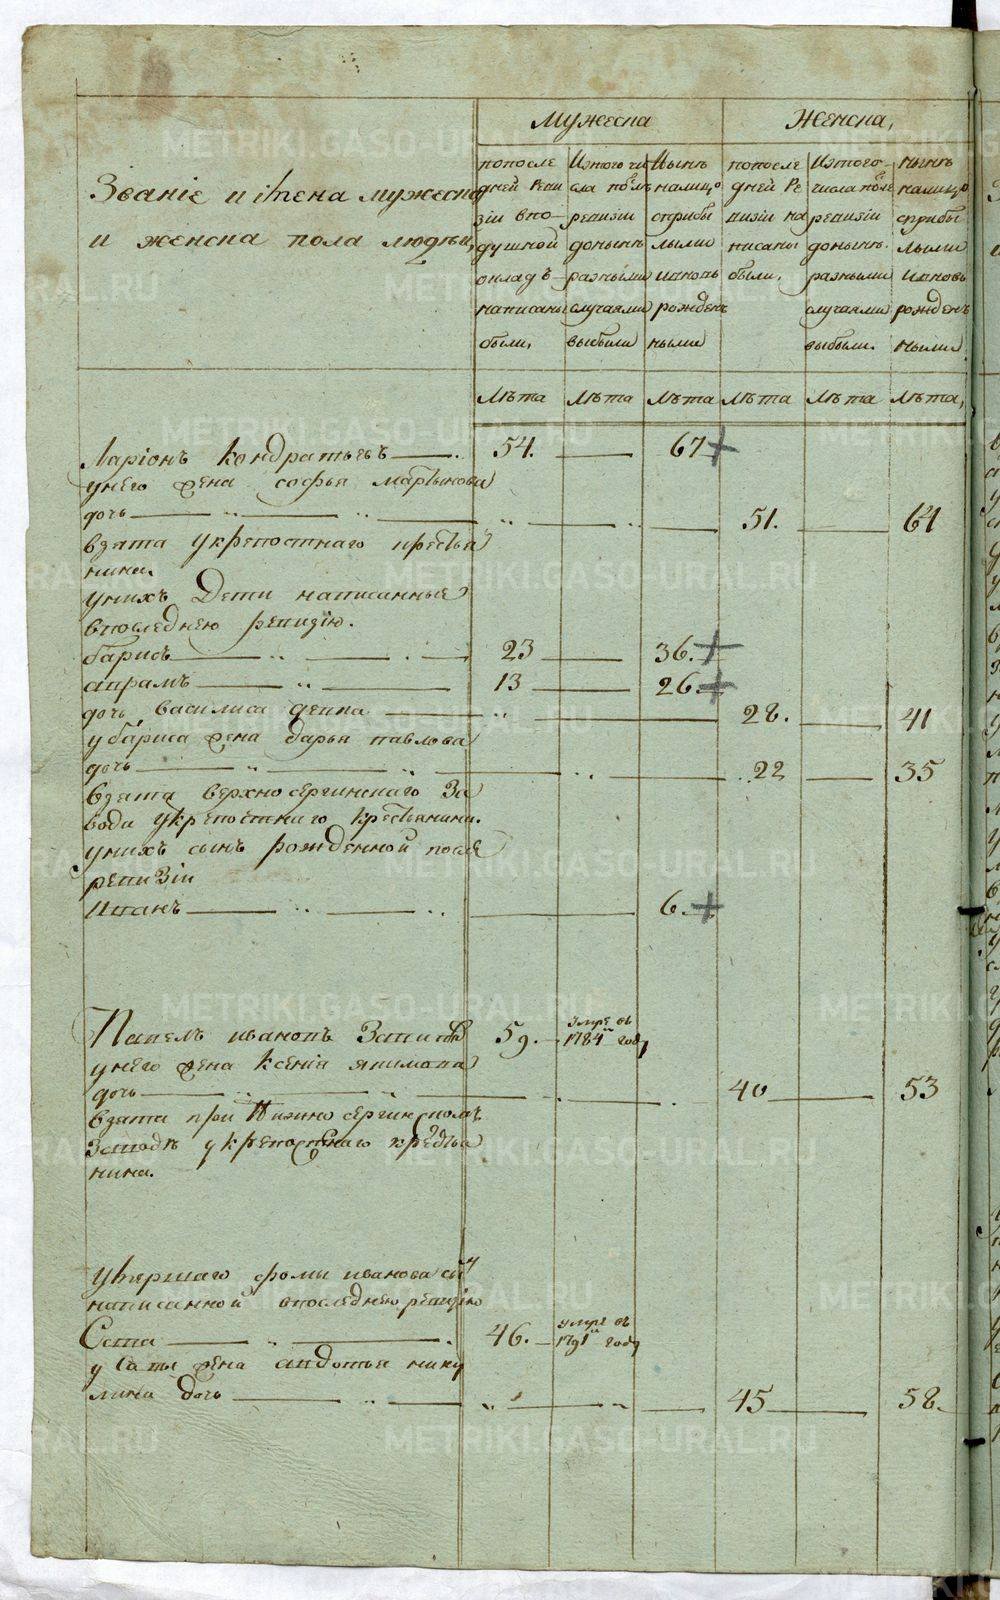 Мужеска
Женска,
Званіе и имена мужеска
и женска пола людъи,
попосле
дней Реви
зіи впо
душной
окладъ
написаны
были,
Изтого чи
сла послъ
ревизіи
донынъ
разными
случаями
выбыли
Нынъ
налицо
сприбы
лыми
ивновь
рожден
ными
попосле
дней Ре
визіи на
писаны
были,
Изтого
числа после
ревизіи
донынъ.
разными
случаями
выбыли.
Нынъ
налицо
сприбы
лыми
ивновь
рожден
ными
Лъта Лъта Лъта Лъта Лъта Лъта,
Ларіонъ Кондратьевъ 54. 67
унего жена софья Мартынова
дочь 51. 64
взята укрепостнаго крестья
нина.
унихъ Дети написанные
впоследнею ревизію.
барисъ 23 36.
аврамъ 13 26.
дочь василиса девка 28. 41
убариса жена дарья павлова
дочь 22 35
взята верхно сергинскаго За
вода укрепостнаго крестьянина.
унихъ сынъ рожденной после
ревизіи
Иванъ 6.
Павелъ ивановъ 59. умре въ 1784 году
унего жена ксенія якимова
дочь 40 53
взята при Нижно сергинскомъ
заводъ укрепостнаго крестья
нина.
умершаго фомы иванова сынъ
написанной впоследнею ревизію
Сава 46. умре въ 1791 году
у Савы жена авдотья нику
лина дочь 45 58.
METRIKI.GASO-URAL.RU